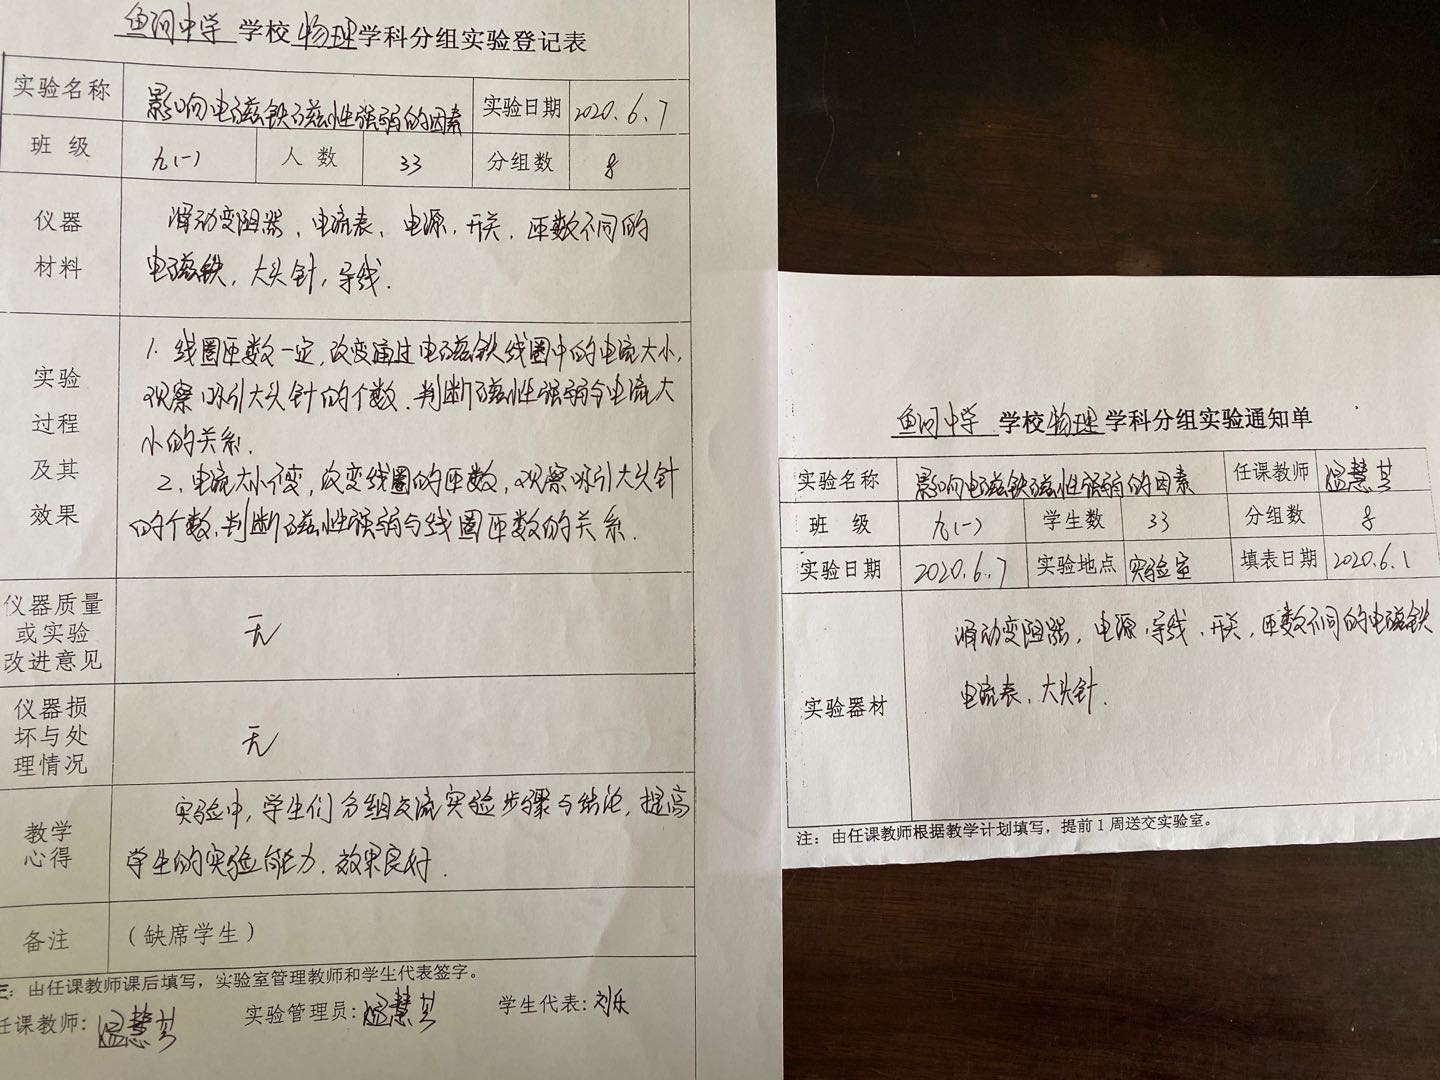 鱼河中学 学校 物理 学科分组实验登记表
实验名称 影响电磁铁磁性强弱的因素 实验日期 2020.6.7
班 级 九(一) 人 数 33 分组数 8
仪器
材料
滑动变阻器、电流表、电源、开关、匝数不同的
电磁铁，大头针，导线.
实验
过程
及其
效果
1. 线圈匝数一定，改变通过电磁铁线圈中的电流大小，
观察吸引大头针的个数.判断磁性强弱与电流大
小的关系.
2、电流大小不变，改变线圈的匝数，观察吸引大头针
的个数,判断磁性强弱与线圈匝数的关系.
仪器质量
或实验
改进意见
无
仪器损
坏与处
理情况
无
教学
心得
实验中，学生们分组交流实验步骤与结论，提高
学生的实验能力，效果良好.
备注 （缺席学生）
注：由任课教师课后填写，实验室管理教师和学生代表签字。
任课教师：温慧芳 实验管理员：温慧芳 学生代表：刘乐
鱼河中学 学校 物理 学科分组实验通知单
实验名称 影响电磁铁磁性强弱的因素 任课教师 温慧芳
班 级 九(一) 学生数 33 分组数 8
实验日期 2020.6.7 实验地点 实验室 填表日期 2020.6.1
实验器材
滑动变阻器，电源，导线、开关，匝数不同的电磁铁
电流表、大头针.
注：由任课教师根据教学计划填写，提前1周送交实验室。